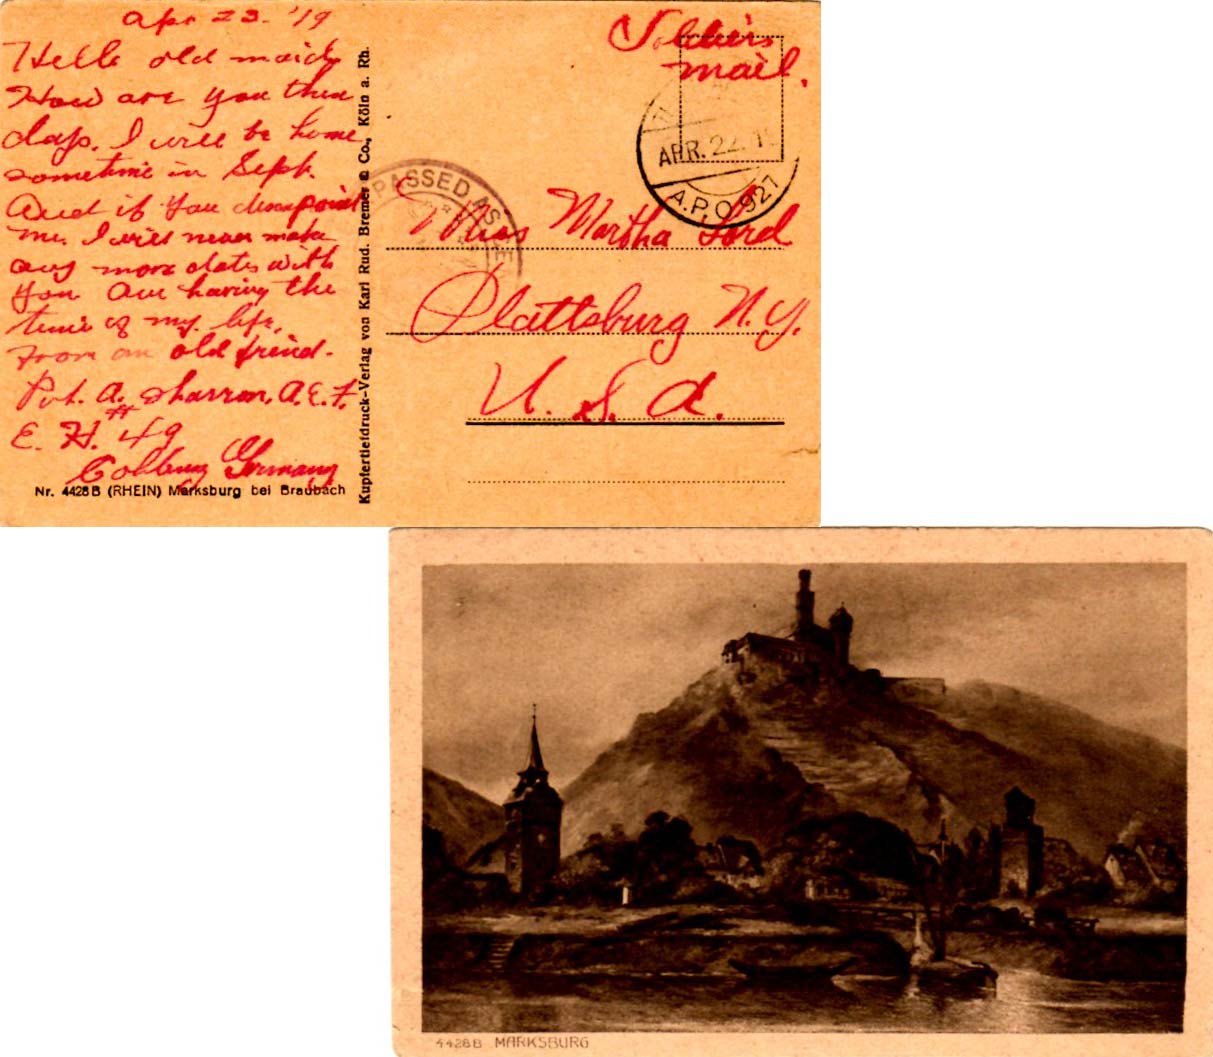 Apr 23. '19
Hello old maid
How are you these
days. I will be home
sometime in Sept.
And if you disapoint
me. I will never make
any more dates with
you Am having the
time of my life.
From an old friend.
Pvt. A. Sharron. A.E.F.
E. H. #49
Coblenz Germany
Nr. 4428 B (RHEIN) Marksburg bei Braubach
Kupfertiefdruck-Verlag von Karl Rud. Bremer & Co., Köln a. Rh.
Soldiers
mail.
APR. 22. 19
A.P.O. 927
PASSED AS
Miss Martha Lord
Plattsburg N.Y.
U. S. A.
4428B MARKSBURG